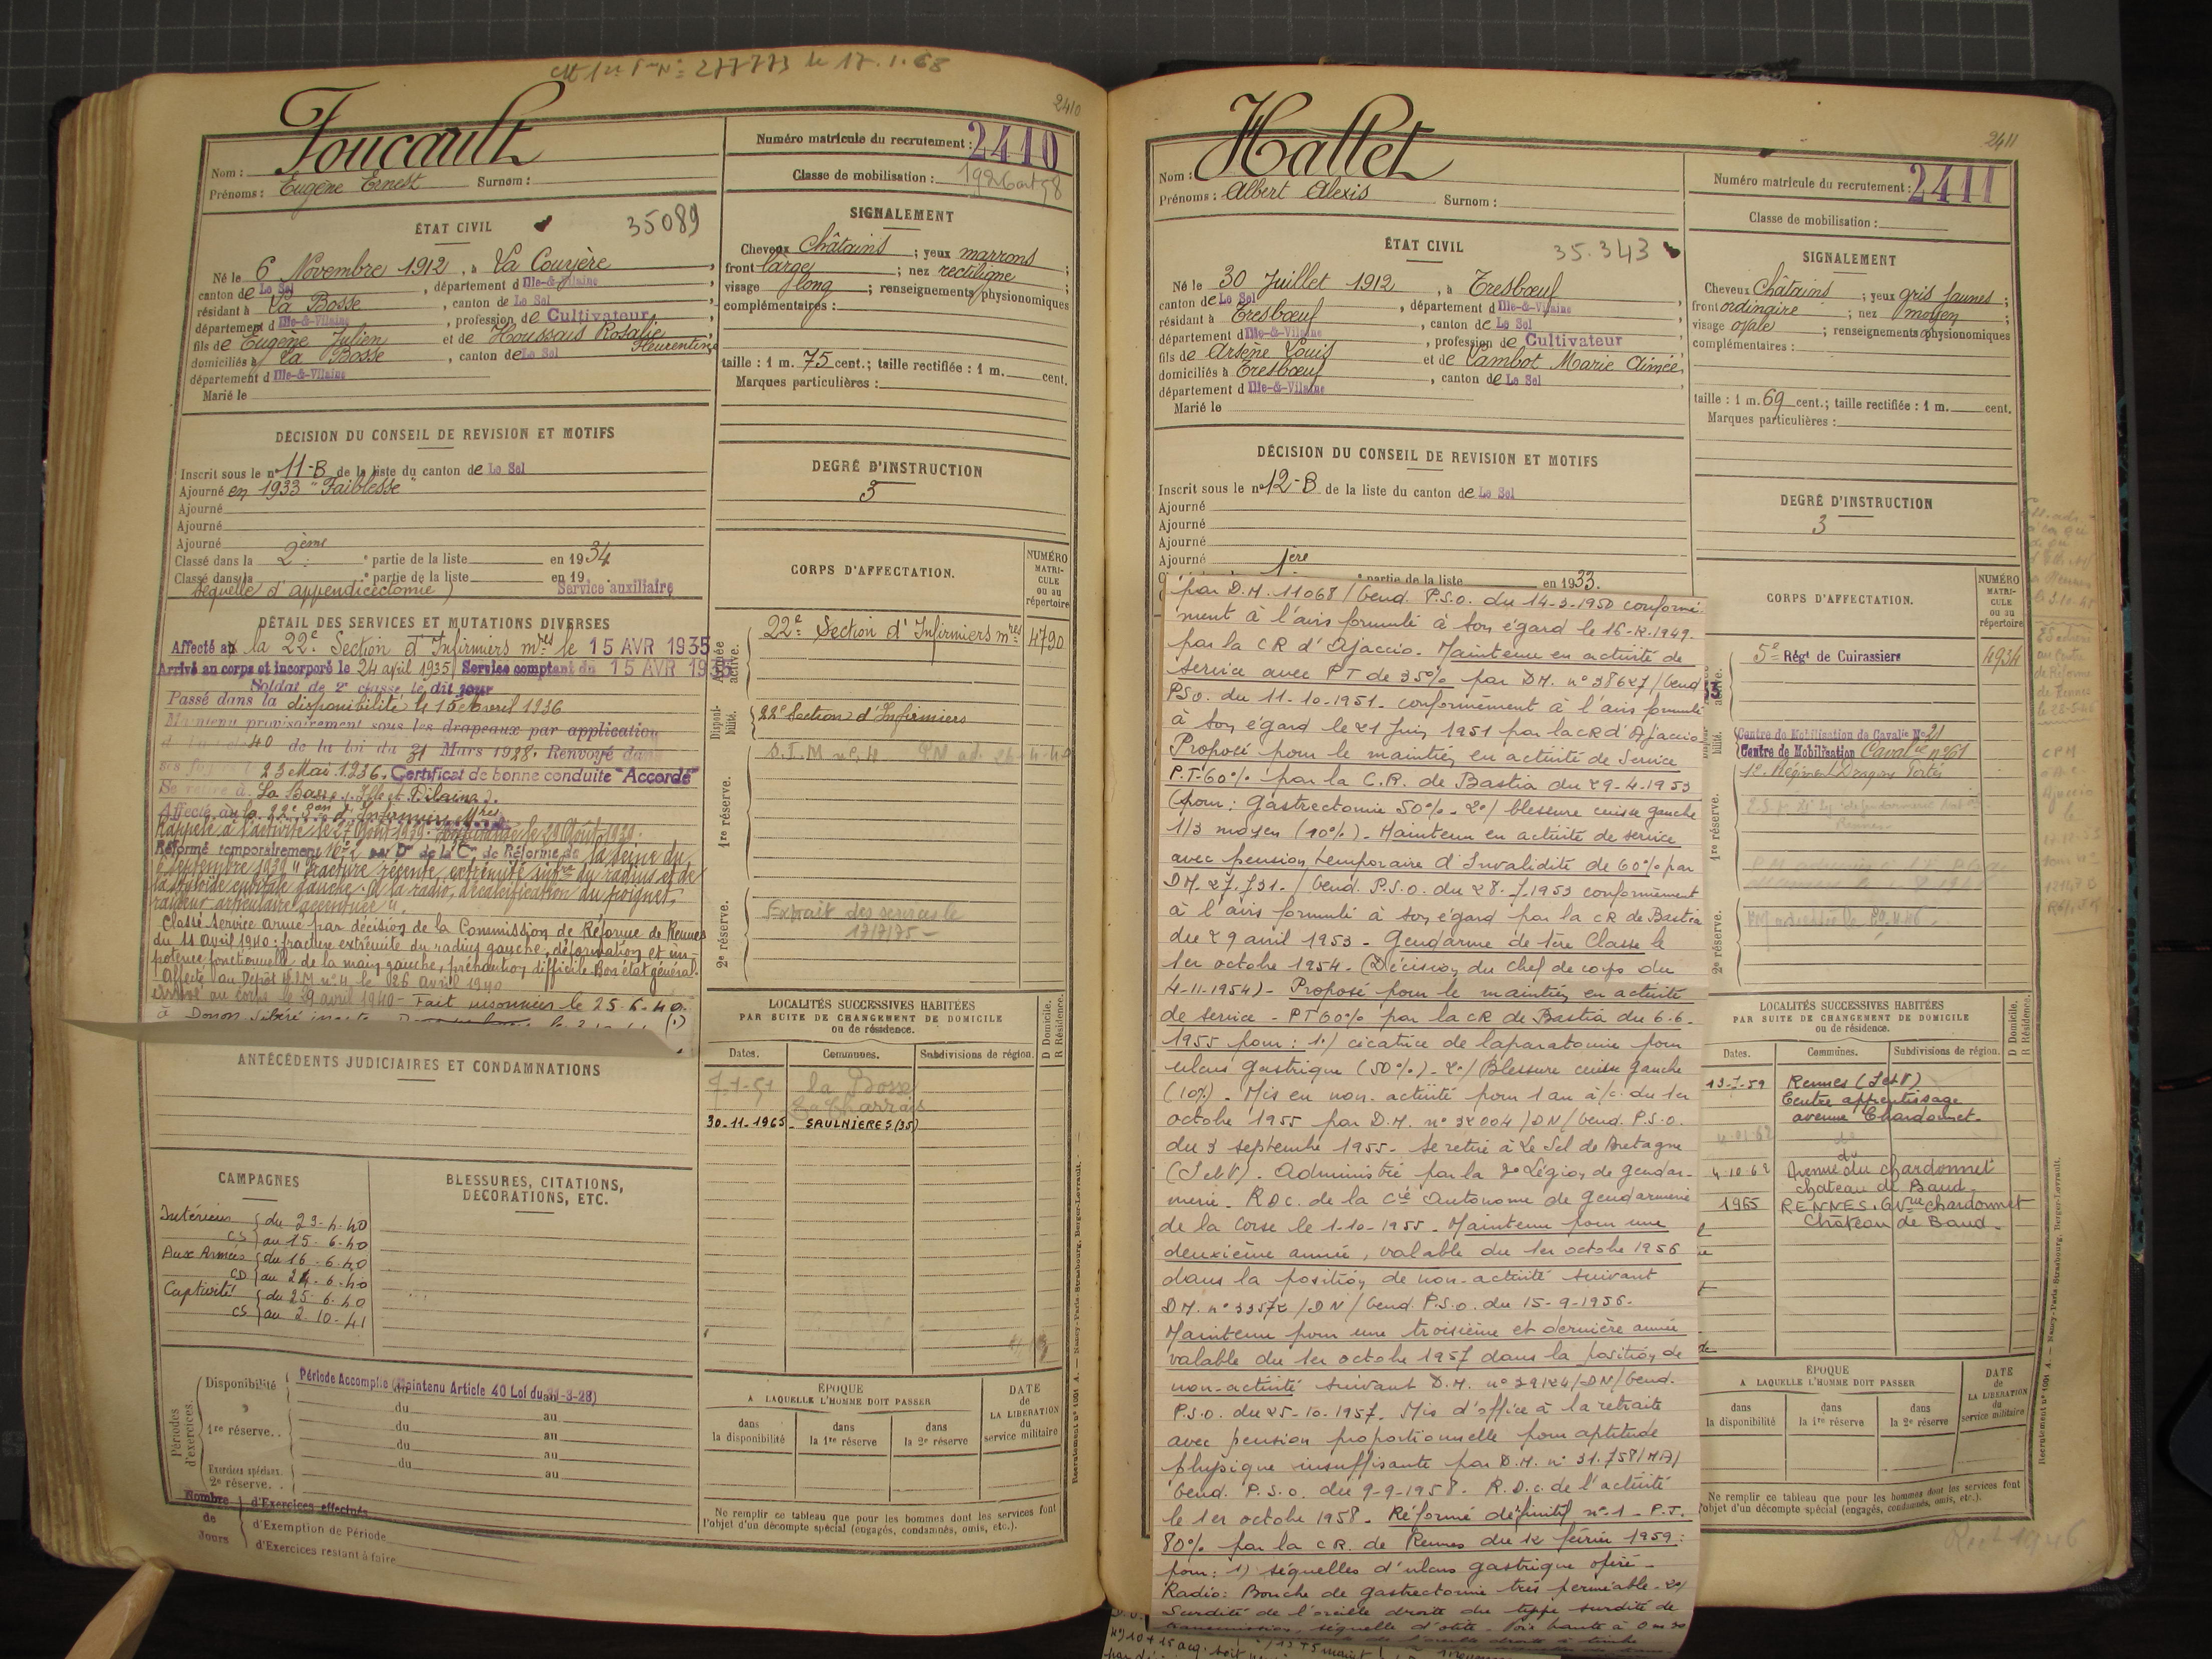 le 17.1.68
2410
Nom : Foucault
Prénoms : Eugène Ernest Surnom :
Numéro matricule du recrutement : 2410
Classe de mobilisation :
ÉTAT CIVIL
35089
Né le 6 Novembre 1912, à La Couyère,
canton de Le Sel, département d Ille-&-Vilaine,
résidant à La Bosse, canton de Le Sel,
département d Ille-&-Vilaine, profession de Cultivateur,
fils de Eugène Julien et de Houssais Rosalie
Fleurentine
domiciliés à La Bosse, canton de Le Sel
département d Ille-&-Vilaine
Marié le
SIGNALEMENT
Cheveux Châtains ; yeux marrons ;
front large ; nez rectiligne ;
visage long ; renseignements physionomiques
complémentaires :
taille : 1 m. 75 cent.; taille rectifiée : 1 m. cent.
Marques particulières :
DÉCISION DU CONSEIL DE REVISION ET MOTIFS
Inscrit sous le n° 11-B de la liste du canton de Le Sel
Ajourné en 1933 "Faiblesse"
Ajourné
Ajourné
Ajourné
Classé dans la 2ème partie de la liste en 1934
Classé dans la partie de la liste en 19
séquelle d'appendicectomie) Service auxiliaire
DEGRÉ D'INSTRUCTION
3
DÉTAIL DES SERVICES ET MUTATIONS DIVERSES
Affecté à la 22e Section d'Infirmiers mres le 15 AVR 1935
Arrivé au corps et incorporé le 24 avril 1935 Service comptant du 15 AVR 1935
Soldat de 2e classe le dit jour
Passé dans la disponibilité le 15 avril 1936
Maintenu provisoirement sous les drapeaux par application
40 de la loi du 31 Mars 1928. Renvoyé dans
ses foyers le 23 Mai 1936. Certificat de bonne conduite "Accordé"
Se retire à La Bosse, Ille et Vilaine).
Affecté à la 22e Son d'Infirmiers Mres
Rappelé à l'activité le 27 Août 1939. le 29 Août 1939.
Réformé temporairement par Don de la Con de Réforme de la Seine du
6 septembre 1939 "Fracture récente, extrémité infre du radius et de
la styloïde cubitale gauche. A la radio, décalcification du poignet,
raideur articulaire accentuée".
Classé Service armé par décision de la Commission de Réforme de Rennes
du 11 avril 1940 : fracture extrémité du radius gauche, déformation et im-
potence fonctionnelle de la main gauche, préhension difficile. Bon état général.
Affecté au Dépôt S.I.M n° 4 le 26 avril 1940
Arrivé au corps le 29 avril 1940 - Fait prisonnier le 25-6-40
à Donon. Libéré
CORPS D'AFFECTATION.
NUMÉRO
MATRI-
CULE
ou au
répertoire
Armée
active.
22e Section d'Infirmiers mres 4790
Disponi-
bilité.
22e Section d'Infirmiers
1re réserve.
S.I.M n° 4
2e réserve.
Extrait des services le
17/7/75
ANTÉCÉDENTS JUDICIAIRES ET CONDAMNATIONS
LOCALITÉS SUCCESSIVES HABITÉES
PAR SUITE DE CHANGEMENT DE DOMICILE
ou de résidence.
Dates. Communes. Subdivisions de région. D Domicile. R Résidence.
7-1-51 La Bosse
30-11-1965 SAULNIERES (35)
CAMPAGNES
BLESSURES, CITATIONS,
DÉCORATIONS, ETC.
Intérieur du 29-4-40
CS au 15-6-40
Aux Armées du 16-6-40
CD au 24-6-40
Captivité du 25-6-40
CS au 2-10-41
Périodes
d'exercices.
Disponibilité Période Accomplie (Maintenu Article 40 Loi du 31-3-28)
1re réserve. . du au
du au
du au
Exercices spéciaux.
2e réserve. . du au
Nombre
de
Jours
d'Exercices effectués
d'Exemption de Période
d'Exercices restant à faire
ÉPOQUE
A LAQUELLE L'HOMME DOIT PASSER
dans
la disponibilité
dans
la 1re réserve
dans
la 2e réserve
DATE
de
LA LIBÉRATION
du
service militaire
Ne remplir ce tableau que pour les hommes dont les services font
l'objet d'un décompte spécial (engagés, condamnés, omis, etc.).
Recrutement n° 1001 A. — Nancy-Paris-Strasbourg, Berger-Levrault.
2411
Nom : Hallet
Prénoms : Albert Alexis Surnom :
Numéro matricule du recrutement : 2411
Classe de mobilisation :
ÉTAT CIVIL
35.343
Né le 30 Juillet 1912, à Tresbœuf
canton de Le Sel, département d Ille-&-Vilaine
résidant à Tresbœuf, canton de Le Sel
département d Ille-&-Vilaine, profession de Cultivateur
fils de Arsène Louis et de Lambot Marie Aimée,
domiciliés à Tresbœuf, canton de Le Sel
département d Ille-&-Vilaine
Marié le
SIGNALEMENT
Cheveux Châtains ; yeux gris jaunes ;
front ordinaire ; nez moyen ;
visage ovale ; renseignements physionomiques
complémentaires :
taille : 1 m. 69 cent.; taille rectifiée : 1 m. cent.
Marques particulières :
DÉCISION DU CONSEIL DE REVISION ET MOTIFS
Inscrit sous le n° 12-B de la liste du canton de Le Sel
Ajourné
Ajourné
Ajourné
Ajourné
1ere partie de la liste en 1933.
DEGRÉ D'INSTRUCTION
3
par D.M. 11068/Gend. P.S.O. du 14-3-1950 conformé-
ment à l'avis formulé à son égard le 16-12-1949.
par la CR d'Ajaccio. Maintenu en activité de
service avec PT de 35% par DM. n° 38627/Gend
PSO. du 11-10-1951. conformément à l'avis formulé
à son égard le 21 Juin 1951 par la CR d'Ajaccio
Proposé pour le maintien en activité de Service
P.T. 60% par la C.R. de Bastia du 29-4-1953
(pour : Gastrectomie 50% - 2°/ blessure cuisse gauche
1/3 moyen (10%) - Maintenu en activité de service
avec pension temporaire d'Invalidité de 60% par
DM. 27.731. / Gend. P.S.O. du 28.7.1953 conformément
à l'avis formulé à son égard par la CR de Bastia
du 29 avril 1953 - Gendarme de 1ère Classe le
1er octobre 1954. (Décision du Chef de corps du
4-11-1954) - Proposé pour le maintien en activité
de service - PT 60% par la CR de Bastia du 6-6-
1955 pour : 1°/ cicatrice de laparatomie pour
ulcus gastrique (50%) - 2°/ Blessure cuisse gauche
(10%) - Mis en non-activité pour 1 an à/c. du 1er
octobre 1955 par D.M. n° 32004/DN/Gend. P.S.O.
du 3 septembre 1955 - Se retire à Le Sel de Bretagne
(I et V). Administré par la 3e Légion de gendar-
merie. RDC. de la Cie Autonome de Gendarmerie
de la Corse le 1-10-1955 - Maintenu pour une
deuxième année, valable du 1er octobre 1956
dans la position de non-activité suivant
DM. n° 33572/DN/Gend. P.S.O. du 15-9-1956.
Maintenu pour une troisième et dernière année
valable du 1er octobre 1957 dans la position de
non-activité suivant D.M. n° 39124/DN/Gend.
P.S.O. du 25-10-1957. Mis d'office à la retraite
avec pension proportionnelle pour aptitude
physique insuffisante par D.M. n° 31.758/MA/
Gend. P.S.O. du 9-9-1958. R.D.C. de l'activité
le 1er octobre 1958 - Réformé définitif n° 1 - P.T.
80% par la CR. de Rennes du 12 février 1959 :
pour : 1) séquelles d'ulcus gastrique opéré -
Radio : Bouche de gastrectomie très perméable - 2°/
Surdité de l'oreille droite du type surdité de
transmission, séquelle d'otite - Voix haute à
CORPS D'AFFECTATION.
NUMÉRO
MATRI-
CULE
ou au
répertoire
5e Régt de Cuirassiers
Centre de Mobilisation de Cavalie N° 21
Centre de Mobilisation Cavalie n° 61
1er Régiment Dragons Portés
1re réserve.
2e réserve.
LOCALITÉS SUCCESSIVES HABITÉES
PAR SUITE DE CHANGEMENT DE DOMICILE
ou de résidence.
Dates. Communes. Subdivisions de région. D Domicile. R Résidence.
13-7-59 Rennes (I et V)
Centre apprentissage
avenue Chardonnet
4-10-62 Avenue du chardonnet
chateau de Baud
1965 RENNES. 6 Avnue chardonnet
Château de Baud.
ÉPOQUE
A LAQUELLE L'HOMME DOIT PASSER
dans
la disponibilité
dans
la 1re réserve
dans
la 2e réserve
DATE
de
LA LIBÉRATION
du
service militaire
Ne remplir ce tableau que pour les hommes dont les services font
l'objet d'un décompte spécial (engagés, condamnés, omis, etc.).
Recrutement n° 1001 A. — Nancy-Paris-Strasbourg, Berger-Levrault.